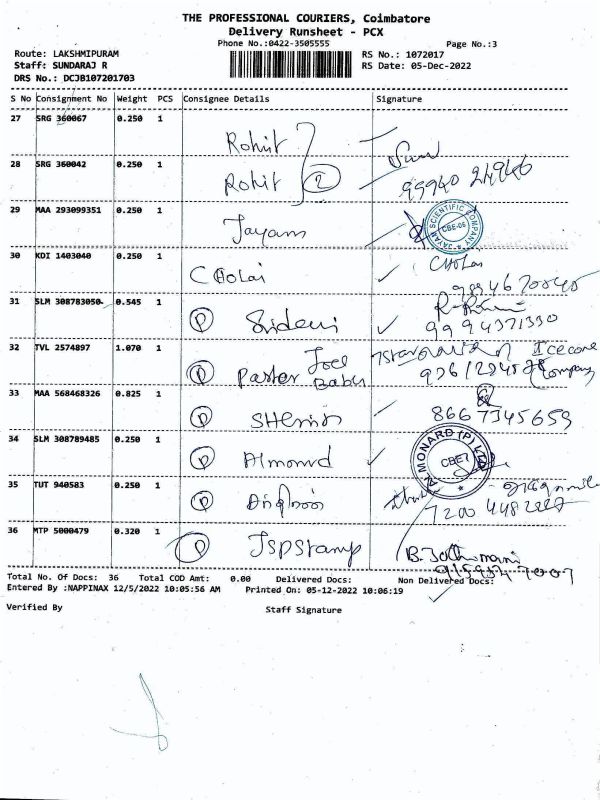 THE PROFESSIONAL COURIERS, Coimbatore
Delivery Runsheet - PCX
Phone No.:0422-3505555
Page No.:3
Route: LAKSHMIPURAM
RS No.: 1072017
Staff: SUNDARAJ R
RS Date: 05-Dec-2022
DRS No.: DCJB107201703
S No Consignment No Weight PCS Consignee Details Signature
27 SRG 360067 0.250 1 Rohit
28 SRG 360042 0.250 1 Rohit 2
29 MAA 293099351 0.250 1 Jayam
JAYAM SCIENTIFIC COMPANY
30 KDI 1403040 0.250 1 CHOLAi CHOLAi
31 SLM 308783050 0.545 1 P Sridevi
9994371330
32 TVL 2574897 1.070 1 P Paster Joel Babu
Icecone
Company
33 MAA 568468326 0.825 1 P
8667345659
34 SLM 308789485 0.250 1 P Almond
ALMONARD (P) LTD
35 TUT 940583 0.250 1 P
36 MTP 5000479 0.320 1 P JSPStamp B. Jothimani
Total No. Of Docs: 36 Total COD Amt: 0.00 Delivered Docs: Non Delivered Docs:
Entered By :NAPPINAX 12/5/2022 10:05:56 AM Printed On: 05-12-2022 10:06:19
Verified By Staff Signature